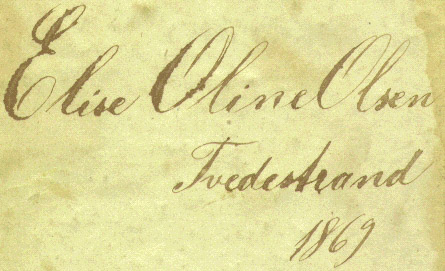 Elise Oline Olsen
Tvedestrand
1869